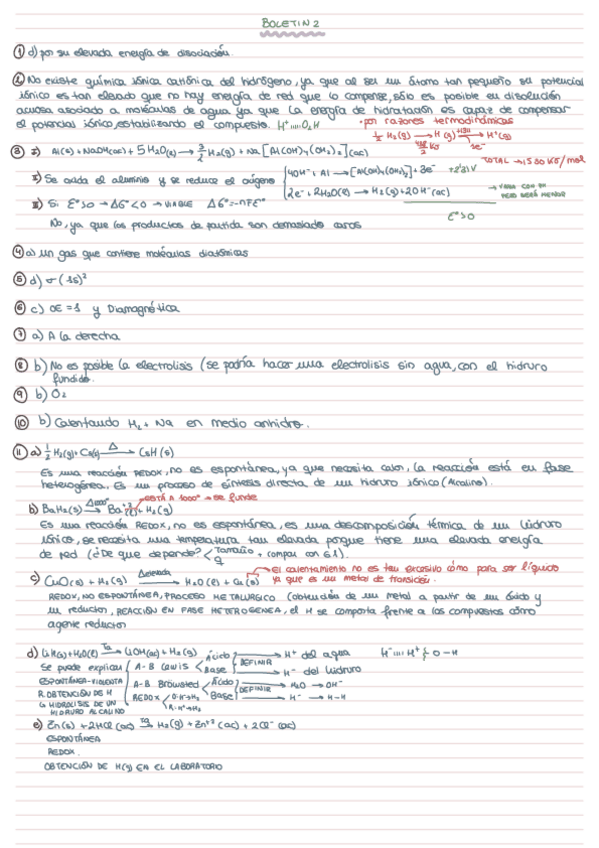 BOLETIN 2
① d) por su elevada energía de disociación.
② No existe química iónica catiónica del hidrógeno, ya que al ser un átomo tan pequeño su potencial
iónico es tan elevado que no hay energía de red que lo compense, sólo es posible en disolución
acuosa asociado a moléculas de agua ya que la energía de hidratación es capaz de compensar
el potencial iónico, estabilizando el compuesto. H⁺ ıııı O₂H
· por razones termodinámicas
½ H₂(g) → H(g) → H⁺(g)
TOTAL → 1530 KJ/mol
③ I) Al(s) + NaOH(ac) + 5H₂O(l) → 3/2 H₂(g) + Na[Al(OH)₄(OH₂)₂](ac)
II) Se oxida el aluminio y se reduce el oxígeno
4OH⁻ + Al → [Al(OH)₄(OH₂)₂] + 3e⁻ +2'31V
2e⁻ + 2H₂O(l) → H₂(g) + 2OH⁻(ac)
III) Si ε°>0 → ΔG°<0 → VIABLE ΔG°=-nFE°
ε°>0
No, ya que los productos de partida son demasiado caros
④ a) un gas que contiene moléculas diatómicas
⑤ d) σ(1s)²
⑥ c) OE = 1 y Diamagnética
⑦ a) A la derecha
⑧ b) No es posible la electrolisis (se podría hacer una electrolisis sin agua, con el hidruro
fundido.
⑨ b) O₂
⑩ b) Calentando H₂ + Na en medio anhidro.
⑪ a) ½ H₂(g) + Cs(g) —Δ→ CsH(s)
Es una reacción REDOX, no es espontánea, ya que necesita calor, la reacción está en fase
heterogénea. Es un proceso de síntesis directa de un hidruro iónico (Alcalino).
b) BaH₂(s) —Δ1000°→ Ba + H₂(g)
ESTÁ A 1000° → se funde
Es una reacción REDOX, no es espontánea, es una descomposición térmica de un hidruro
iónico, se necesita una temperatura tan elevada porque tiene una elevada energía
de red (¿De que depende? < Tamaño q + compar con 61).
c) CuO(s) + H₂(g) —Δ elevada→ H₂O(l) + Cu(s)
El calentamiento no es tan excesivo cómo para ser líquido
ya que es un metal de transición.
REDOX, NO ESPONTÁNEA, PROCESO METALURGICO (obtención de un metal a partir de un óxido y
un reductor, REACCIÓN EN FASE HETEROGENEA, el H se comporta frente a los compuestos cómo
agente reductor
d) LiH(s) + H₂O(l) —Ta→ LiOH(ac) + H₂(g)
H⁻ ıııı H⁺ O-H
Se puede explicar
A-B Lewis Ácido Base DEFINIR H⁺ del agua H⁻ del hidruro
ESPONTÁNEA-VIOLENTA
A-B Browsted Ácido Base DEFINIR H₂O → OH⁻ H⁻ → H-H
R. OBTENCIÓN DE H
REDOX O·H⁻→H₂ R·H⁺→H₂
HIDROLISIS DE UN
HIDRURO ALCALINO
e) Zn(s) + 2HCl(ac) → H₂(g) + Zn⁺²(ac) + 2Cl⁻(ac)
ESPONTÁNEA
REDOX.
OBTENCIÓN DE H(g) EN EL LABORATORIO